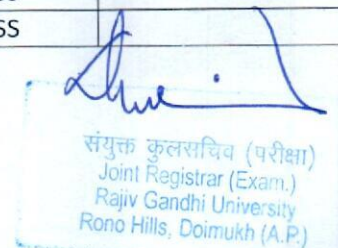 SS
संयुक्त कुलसचिव (परीक्षा)
Joint Registrar (Exam.)
Rajiv Gandhi University
Rono Hills, Doimukh (A.P.)